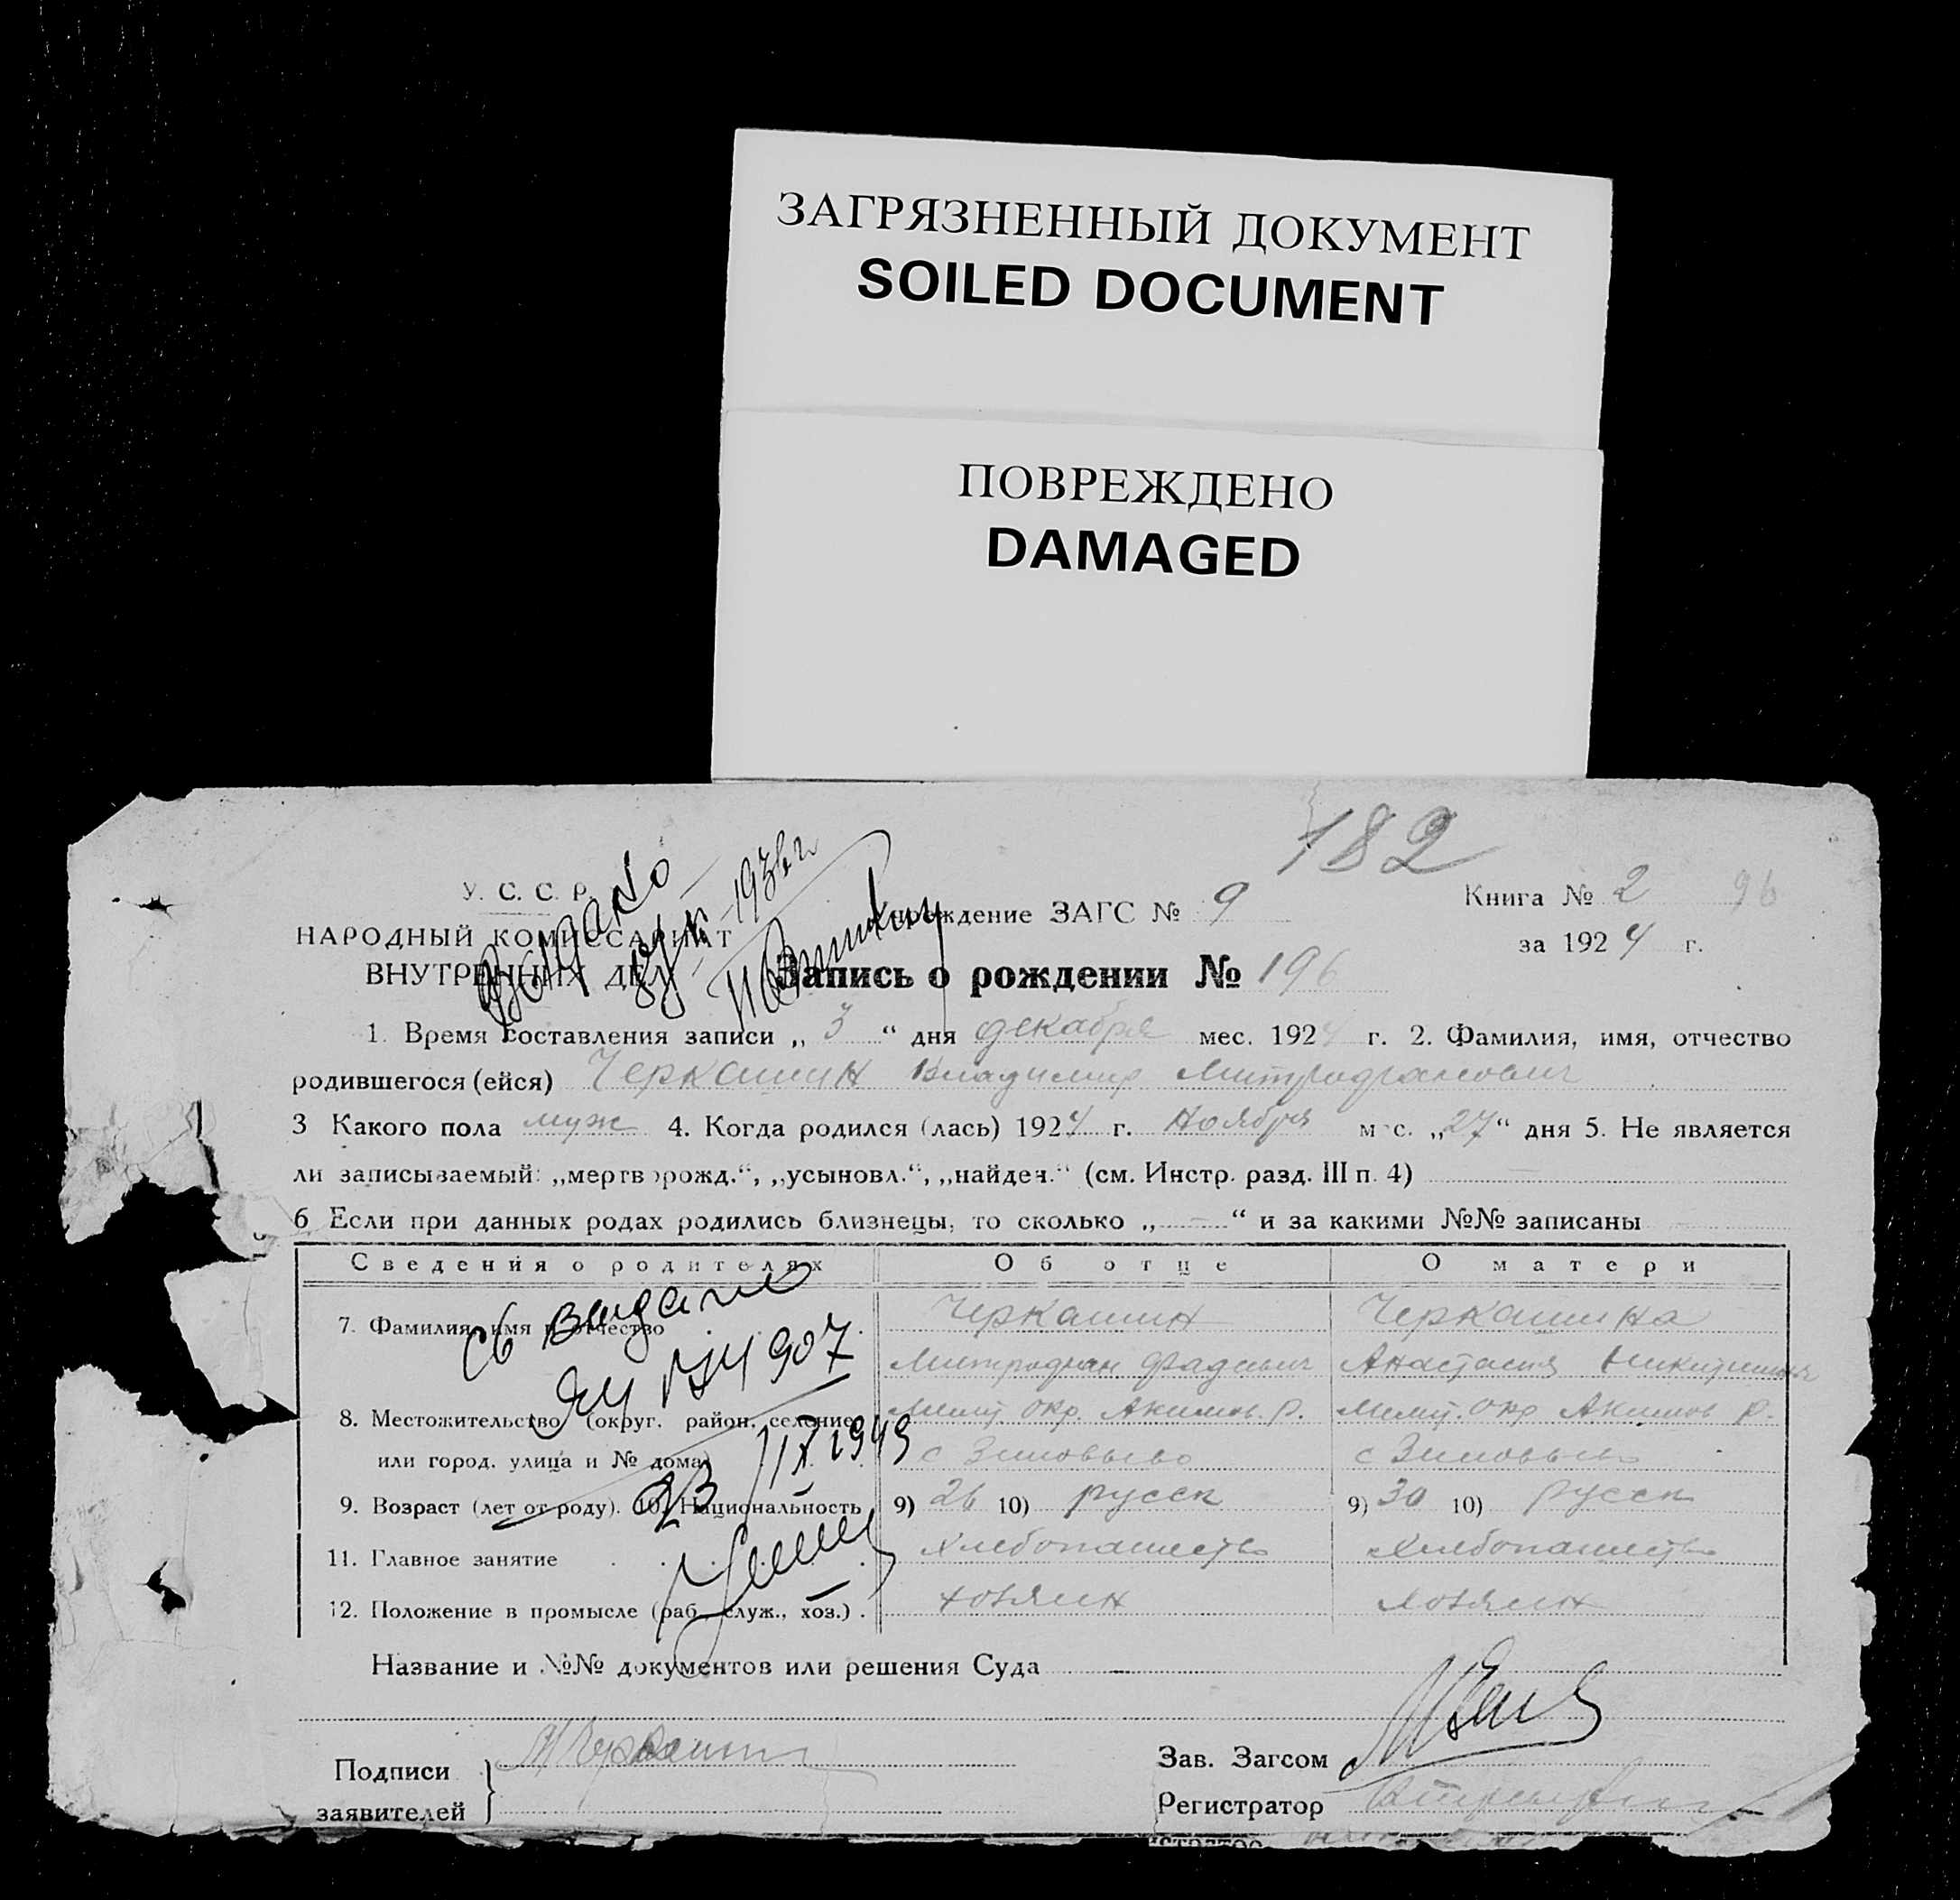 ЗАГРЯЗНЕННЫЙ ДОКУМЕНТ
SOILED DOCUMENT
ПОВРЕЖДЕНО
DAMAGED
182
У. С. С. Р.
НАРОДНЫЙ КОМИССАРИАТ
ВНУТРЕННИХ ДЕЛ
Выдано
1936 г
Учреждение ЗАГС № 9
Книга № 2 96
за 1924 г.
Запись о рождении № 196
1. Время составления записи „ 3 “ дня декабря мес. 1924 г. 2. Фамилия, имя, отчество
родившегося (ейся) Черкашин Владимир Митрофанович
3 Какого пола муж 4. Когда родился (лась) 1924 г. Ноября мес. „27“ дня 5. Не является
ли записываемый: „мертворожд.“, „усыновл.“, „найден.“ (см. Инстр. разд. III п. 4)
6 Если при данных родах родились близнецы, то сколько „ — “ и за какими №№ записаны
Сведения о родителях Об отце О матери
7. Фамилия, имя и отчество Черкашин Черкашина
Митрофан Фадеевич Анастасия Никитишна
8. Местожительство (округ. район, селение Мелит. окр. Акимов. р. Мелит. окр Акимов р.
или город. улица и № дома) с Зиновьево с Зиновьево
9. Возраст (лет от роду). 10. Национальность 9) 26 10) русск 9) 30 10) русск
11. Главное занятие Хлебопашество Хлебопашество
12. Положение в промысле (раб., служ., хоз.) . хозяин хозяин
Св выдано
907
23/IX 1949
Название и №№ документов или решения Суда —
Подписи
заявителей
М Черкашин
Зав. Загсом
Регистратор